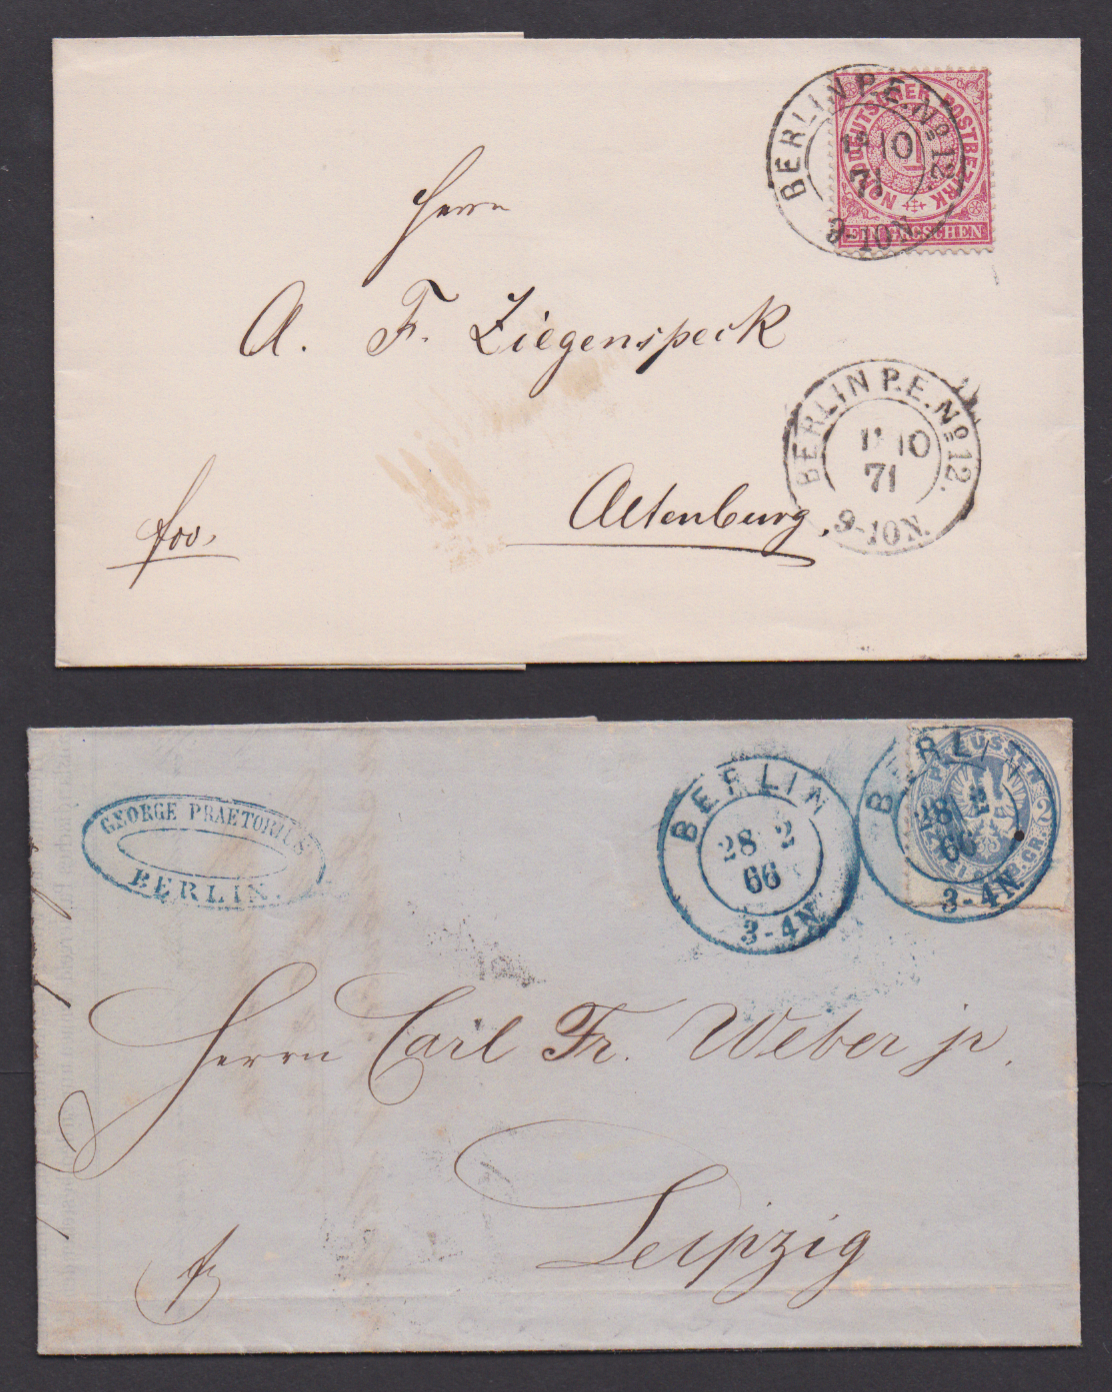 BERLIN P.E. No 12
10
71
9-10N.
NORDDEUTSCHER POSTBEZIRK
1
EIN GROSCHEN
Herrn
A. F. Ziegenspeck
BERLIN P.E. No 12.
11 10
71
9-10N.
Altenburg.
fco.
GEORGE PRAETORIUS
BERLIN.
BERLIN
28 2
66
3-4N
BERLIN
28 2
66
3-4N
PREUSSEN
Herrn Carl Fr. Weber jr.
Leipzig
fr